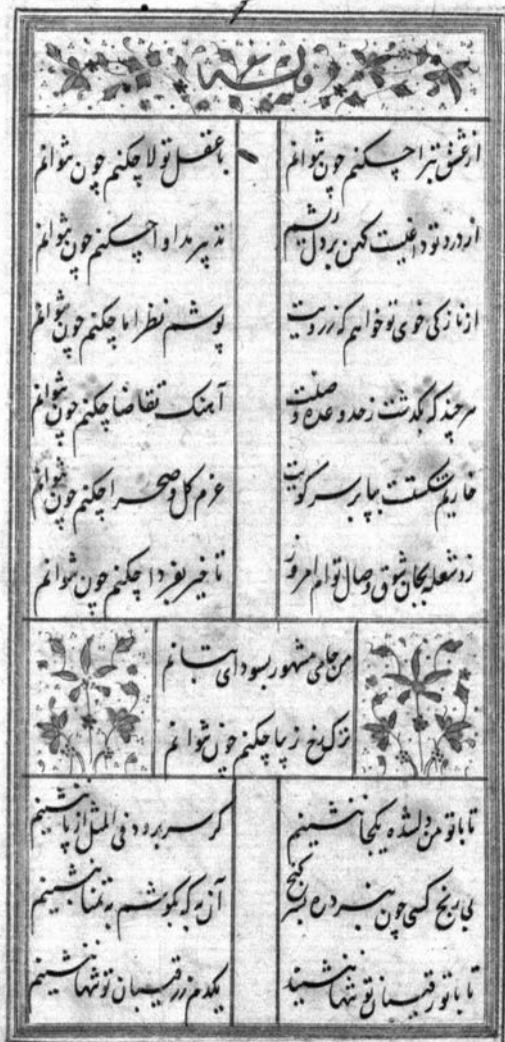 وله ایضا
از عشق تبرا چکنم چون نتوانم
با عقل تولا چکنم چون نتوانم
از درد تو داغیست کهن بر دل ریشم
تدبیر مداوا چکنم چون نتوانم
از نازکی خوی تو خواهم که ز رویت
پوشم نظر اما چکنم چون نتوانم
هر چند که بگذشت ز حد وعده وصلت
آهنک تقاضا چکنم چون نتوانم
خاریم شکستست بپا بر سر کویت
عزم کل و صحرا چکنم چون نتوانم
زد شعله بجان شوق وصال توام امروز
تاخیر بفردا چکنم چون نتوانم
من جامی مشهور بسودای بتانم
ترک رخ زیبا چکنم چون نتوانم
تا با تو من دلشده یکجا ننشینم
کر سر برود فی المثل از پا ننشینم
بی رنج کسی چون نبرد ره بسر کنج
آن به که بکوشم به تمنا ننشینم
تا با تو رقیبان تو تنها ننشینند
یکدم ز رقیبان تو تنها ننشینم